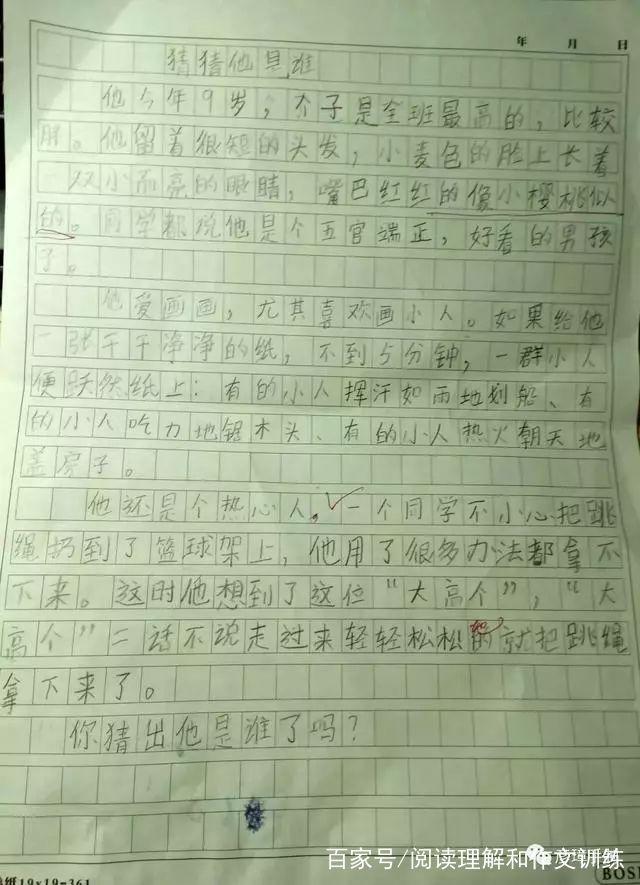 年 月 日
猜猜他是谁
他今年9岁，个子是全班最高的，比较
胖。他留着很短的头发，小麦色的脸上长着
一双小而亮的眼睛，嘴巴红红的像小樱桃似
的。同学都说他是个五官端正，好看的男孩
子。
他爱画画，尤其喜欢画小人。如果给他
一张干干净净的纸，不到5分钟，一群小人
便跃然纸上：有的小人挥汗如雨地划船、有
的小人吃力地锯木头、有的小人热火朝天地
盖房子。
他还是个热心人。一个同学不小心把跳
绳扔到了篮球架上，他用了很多办法都拿不
下来。这时他想到了这位“大高个”，“大
高个”二话不说走过来轻轻松松的就把跳绳
拿下来了。
你猜出他是谁了吗？
纸19×19=361
BOSH
百家号/阅读理解和作文训练